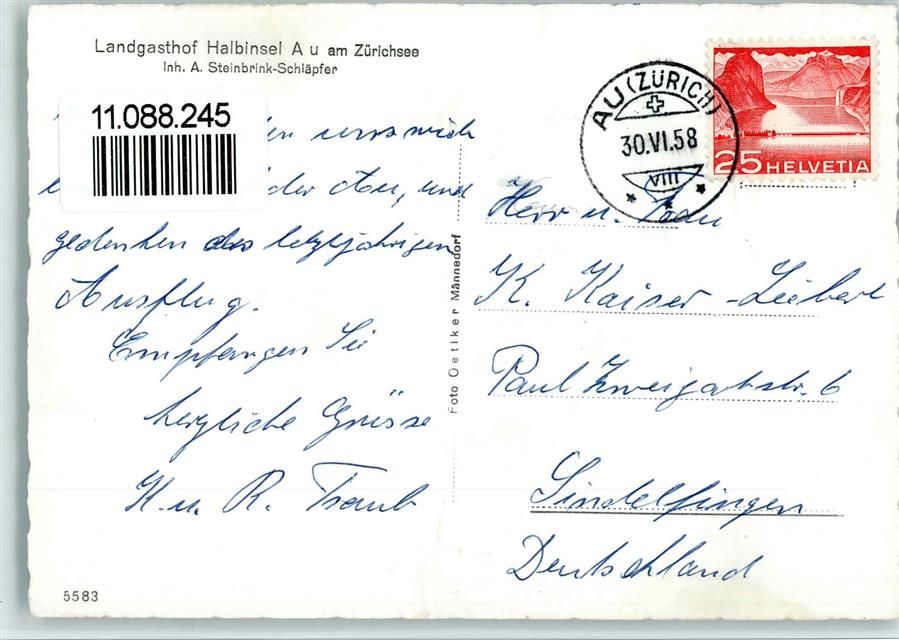 Landgasthof Halbinsel Au am Zürichsee
Inh. A. Steinbrink-Schläpfer
11.088.245
uns wieder
der Au, und
gedenken des letztjährigen
Ausflug.
Empfangen Sie
herzliche Grüsse
K. u. R. Traub
5583
Foto Oetiker Männedorf
AU (ZÜRICH)
30.VI.58
VIII
25 HELVETIA
Herr u. Frau
K. Kaiser-
Paul Zweigartstr. 6
Sindelfingen
Deutschland